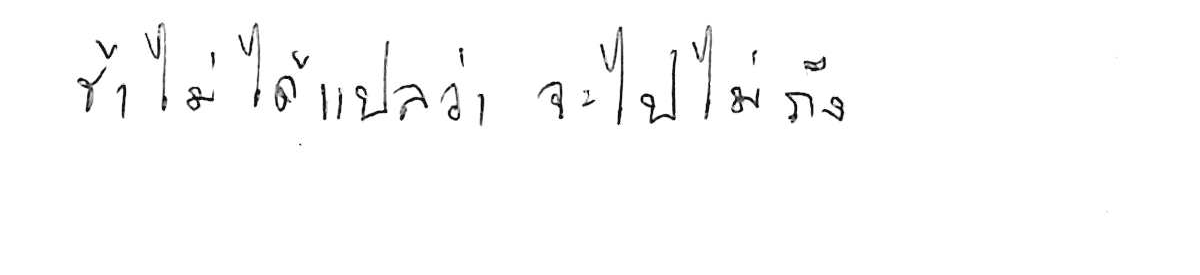 ช้าไม่ได้แปลว่า จะไปไม่ถึง